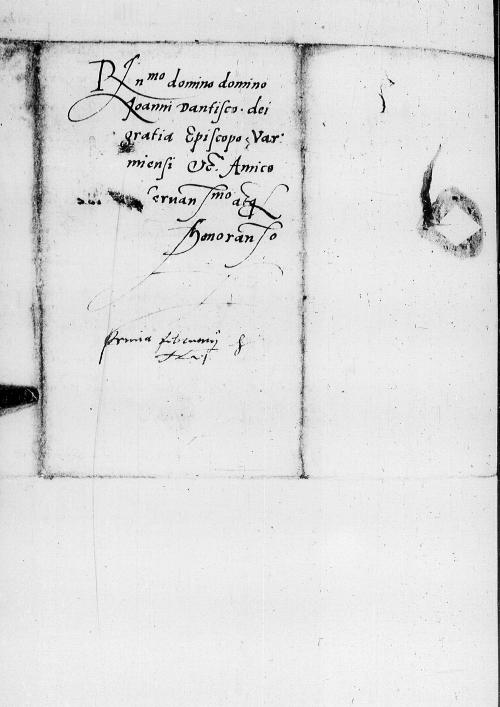 Rᵐᵒ domino domino
Joanni Dantisco. dei
gratia Episcopo Var:
miensi &c. Amico
seruanᵐᵒ atq
Honorando
prima februarij